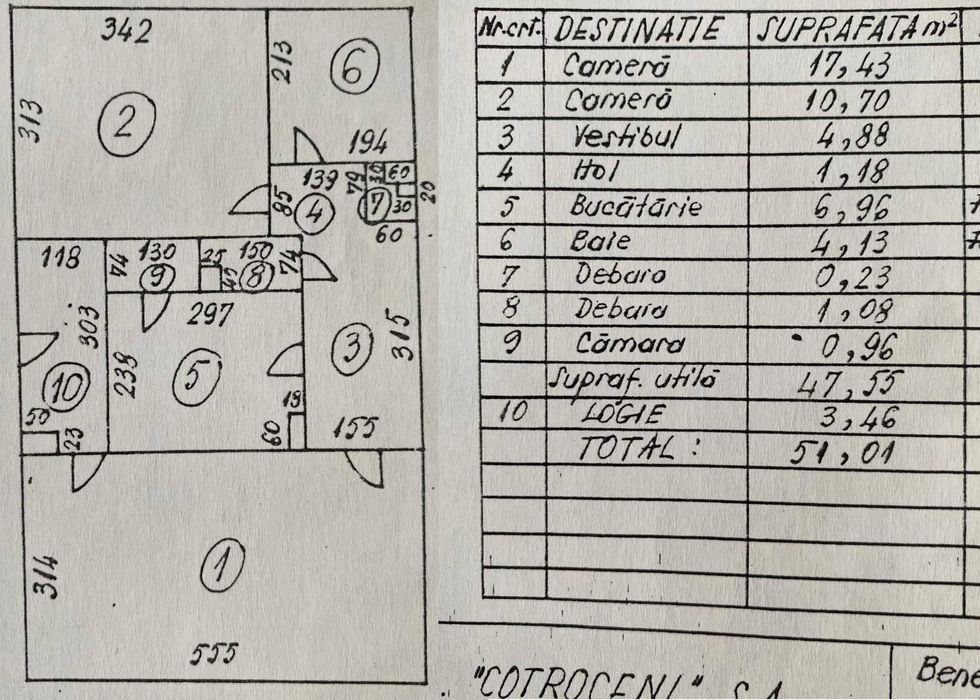 342
213
6
313
2
194
139
79
30
60
20
85
4
7
30
60
118
74
130
9
25
150
8
74
297
303
238
5
3
315
10
50
23
18
60
155
314
1
555
Nr.crt. DESTINATIE SUPRAFATA m²
1 Cameră 17,43
2 Cameră 10,70
3 Vestibul 4,88
4 Hol 1,18
5 Bucătărie 6,96
6 Baie 4,13
7 Debara 0,23
8 Debara 1,08
9 Cămara 0,96
Supraf. utilă 47,55
10 LOGIE 3,46
TOTAL : 51,01
"COTROCENI" S.A.
Bene